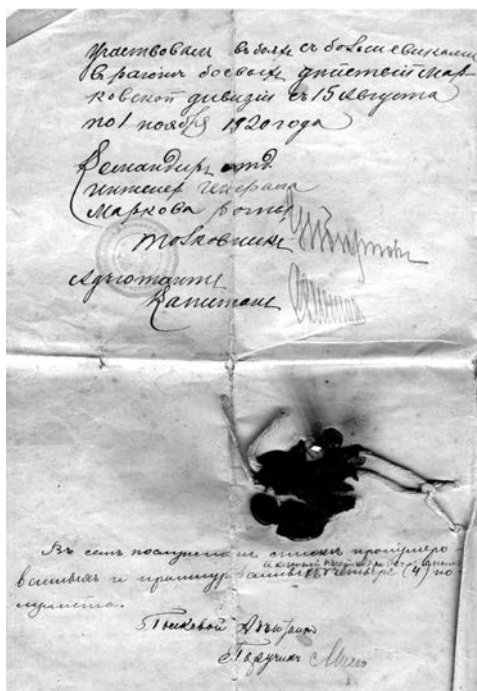 Участвовалъ въ бояхъ съ большевиками
въ районѣ боевыхъ дѣйствій Мар-
ковской дивизіи съ 15 Августа
по 1 ноября 1920 года
Командиръ отд.
инженер генерала
Маркова роты
Полковникъ
Адъютантъ
Капитанъ
Въ семъ послужномъ спискѣ пронумеро
ванныхъ и прошнурованныхъ четыре (4) по
лулиста.
Полковой Адъютантъ
Поручикъ